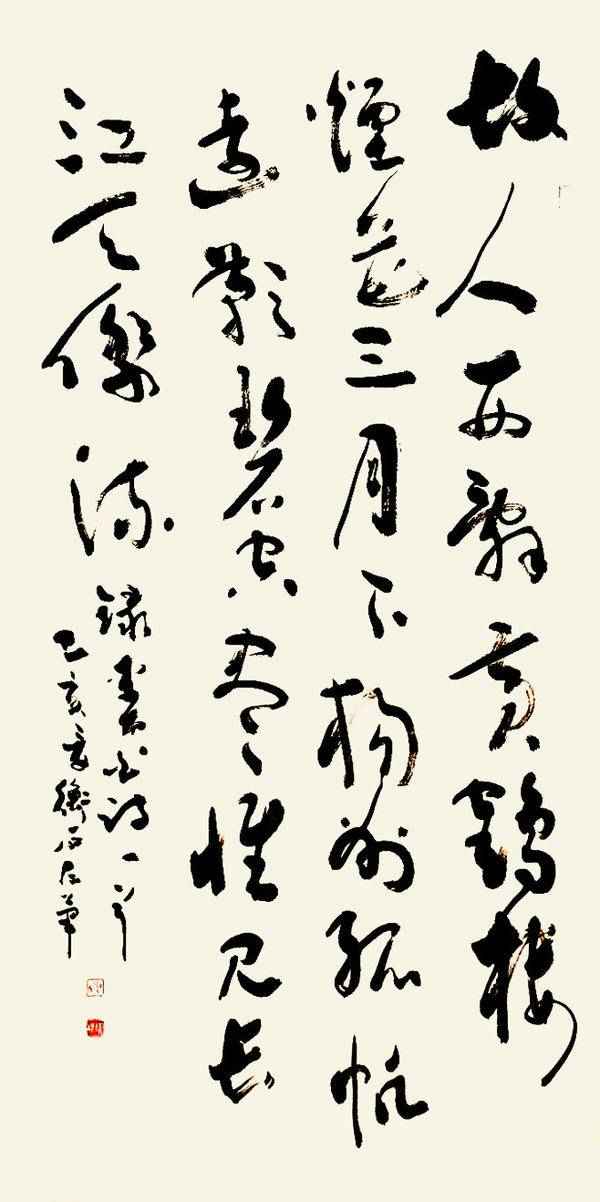 故人西辭黃鶴樓
煙花三月下楊州孤帆
遠影碧空盡惟見長
江天際流 録李太白詩一首
己亥夏衡石左筆